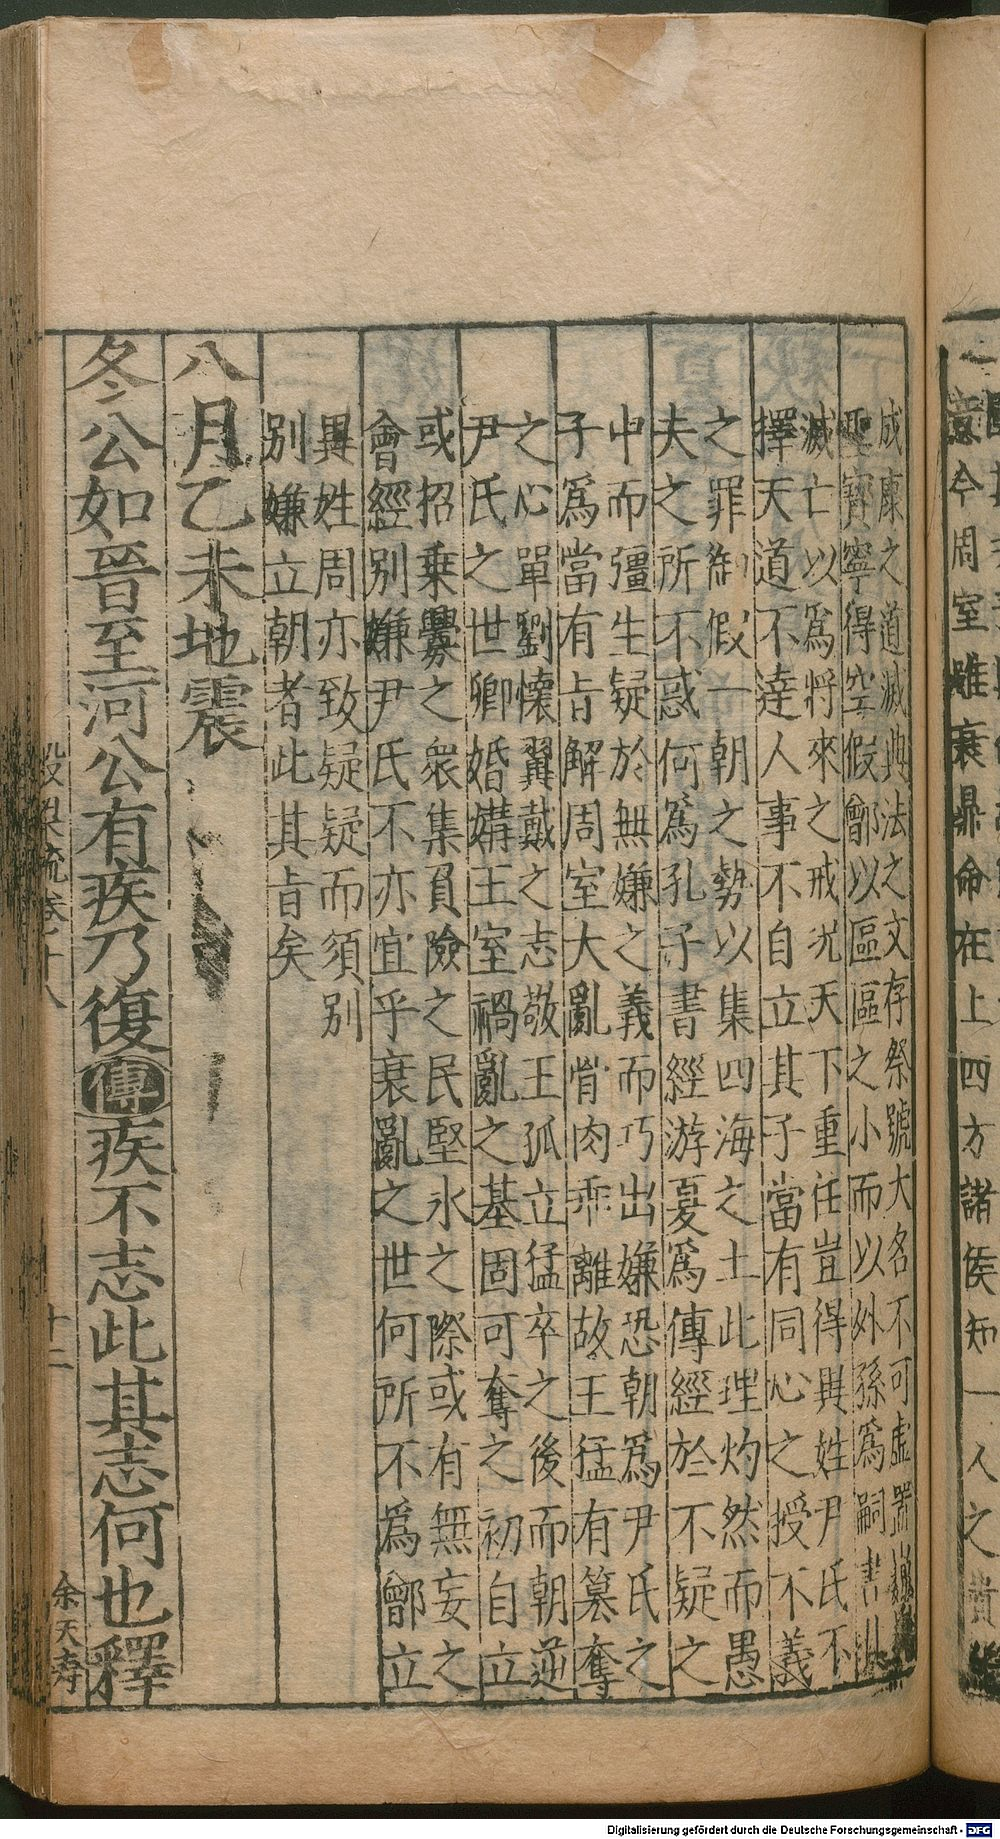 意今周室雖衰鼎命在上四方諸侯知一人之貴
成康之道滅典法之文存祭號大名不可虛置
聖寶寧得空假鄫以區區之小而以外孫為嗣書
滅亡以為將來之戒況天下重任豈得異姓尹氏不
擇天道不達人事不自立其子當有同心之授不義
之罪御假一朝之勢以集四海之士此理灼然而愚
夫之所不惑何為孔子書經游夏為傳經於不疑之
中而彊生疑於無嫌之義而巧出嫌恐朝為尹氏之
子為當有旨解周室大亂骨肉乖離故王猛有篡奪
之心單劉懷翼戴之志敬王孤立猛卒之後而朝逆
尹氏之世卿婚媾王室禍亂之基固可奪之初自立
或招乗釁之衆集負險之民堅氷之際或有無妄之
會經别嫌尹氏不亦宜乎衰亂之世何所不為鄫立
異姓周亦致疑疑而須别
别嫌立朝者此其旨矣
八月乙未地震
冬公如晉至河公有疾乃復傳疾不志此其志何也釋
穀梁疏卷十八
十二
余天壽
Digitalisierung gefördert durch die Deutsche Forschungsgemeinschaft - DFG